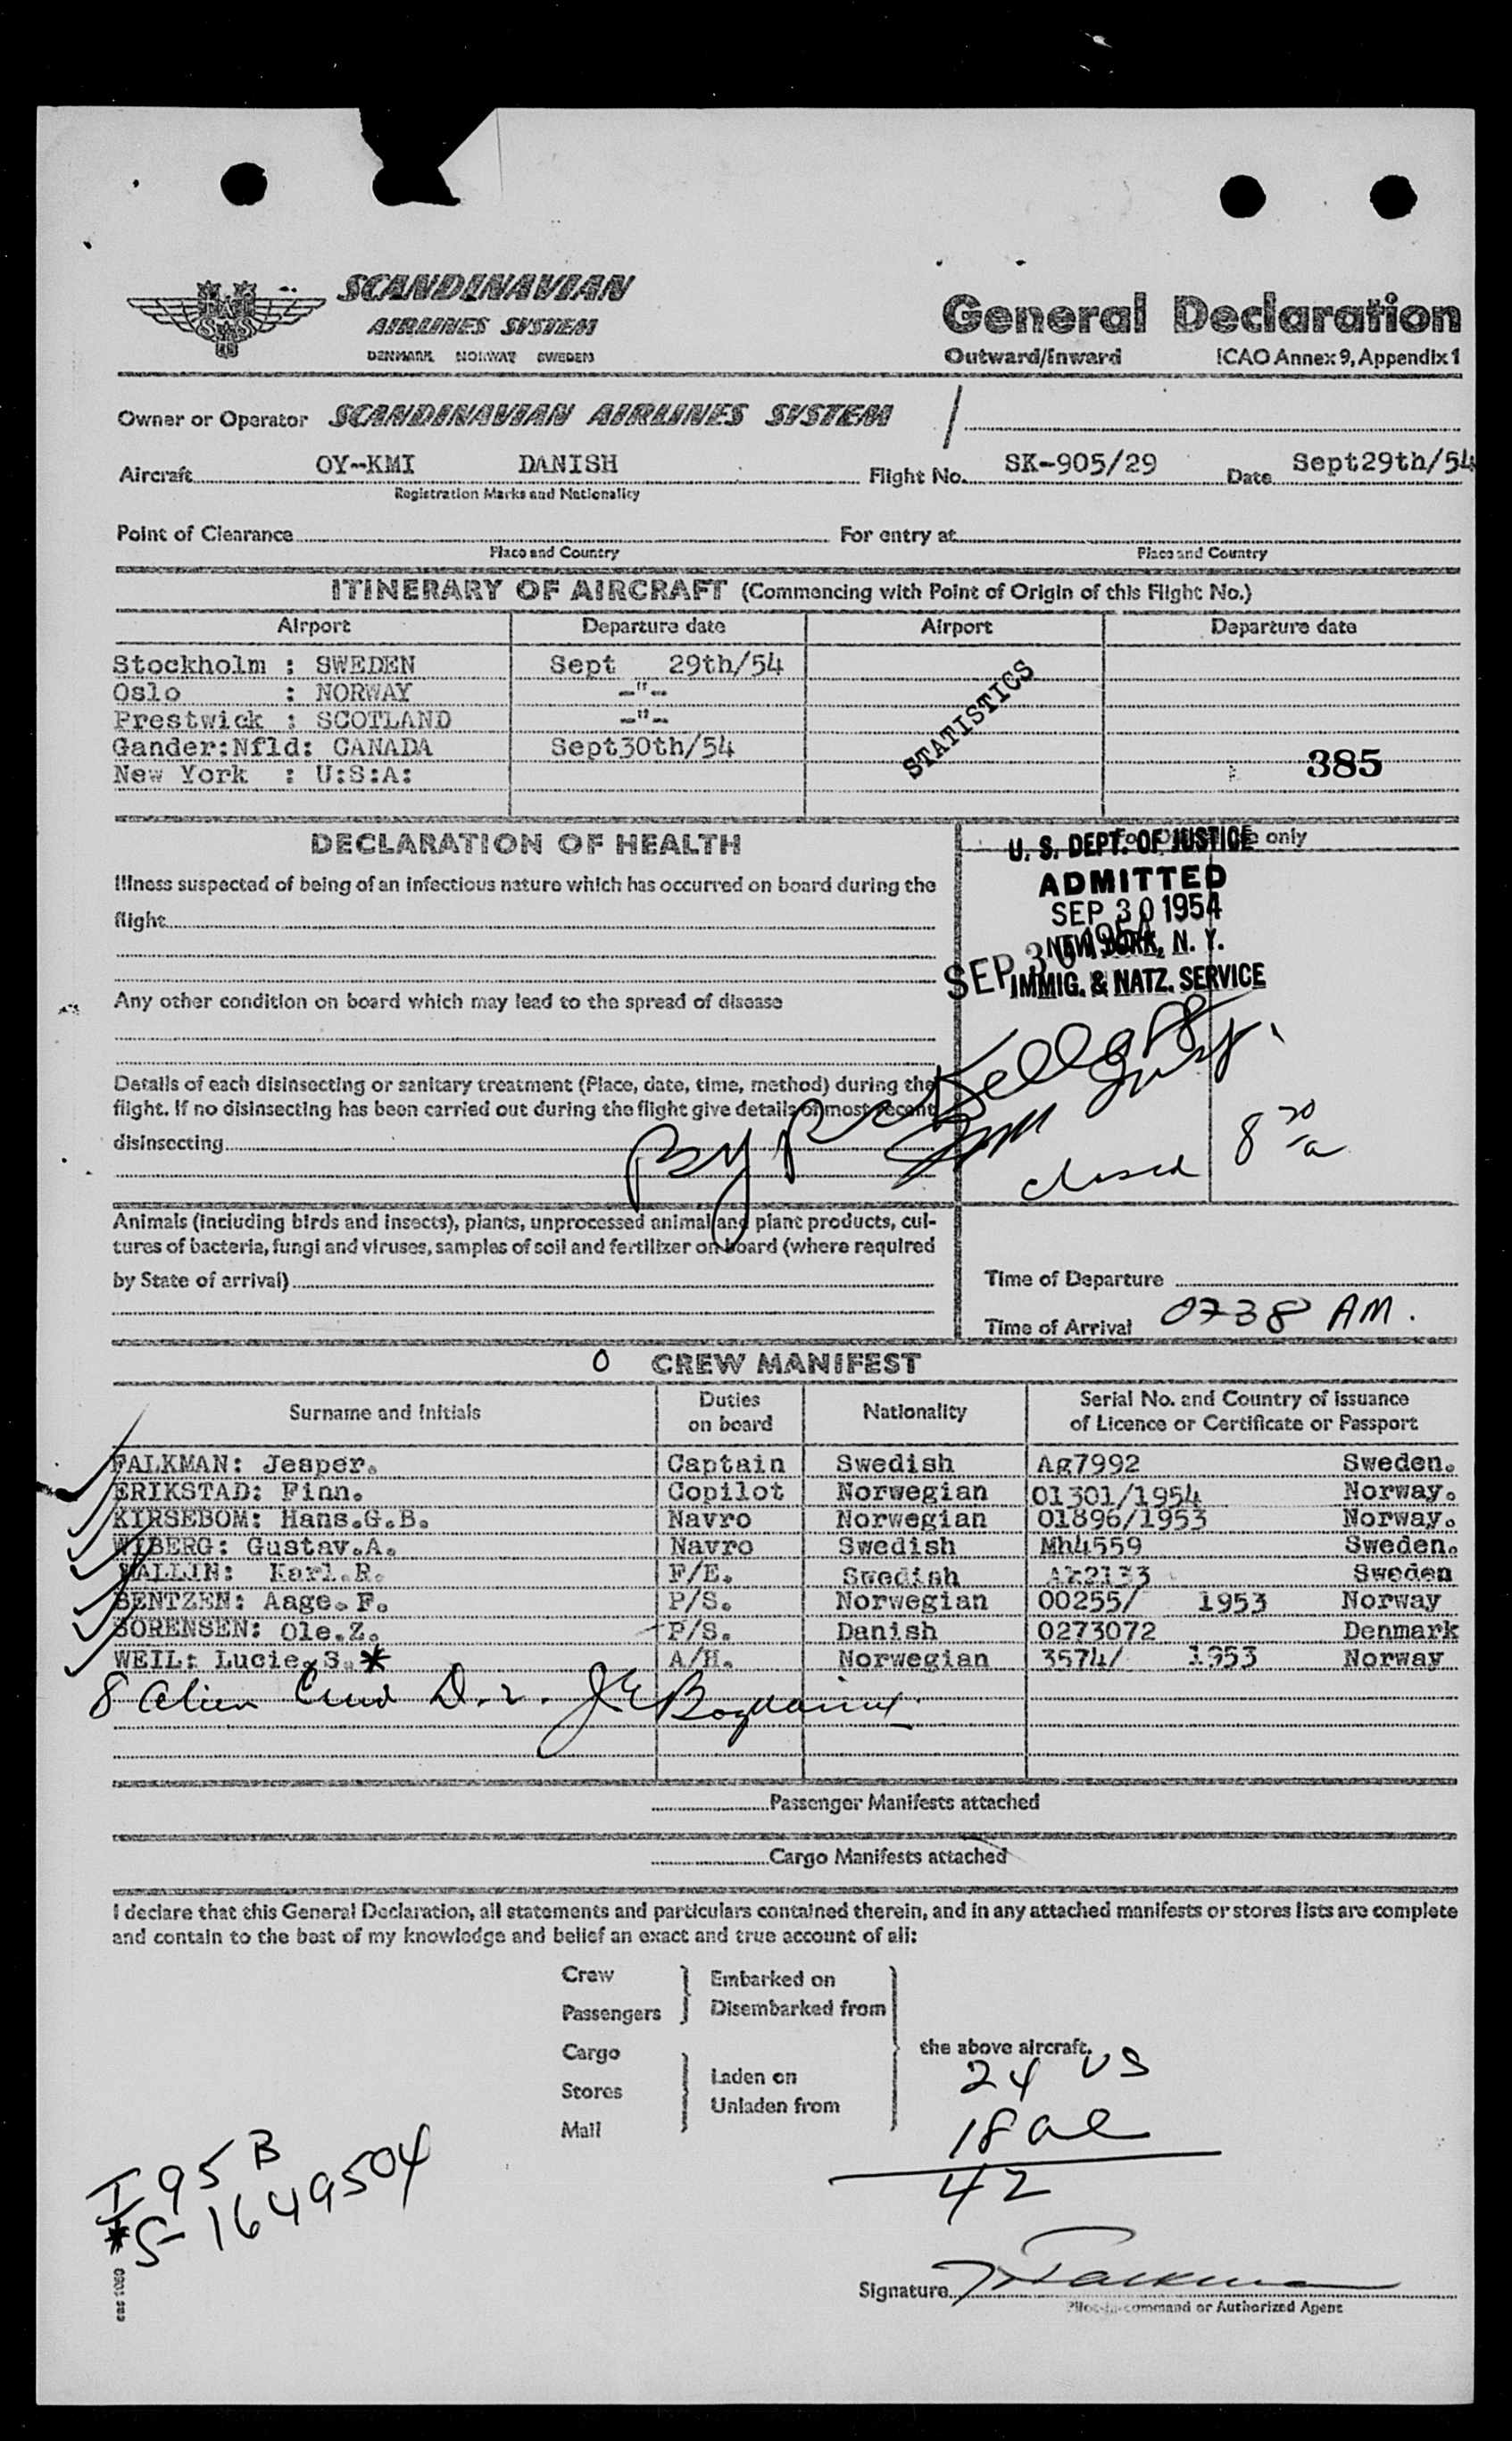 SCANDINAVIAN
AIRLINES SYSTEM
DENMARK NORWAY SWEDEN
General Declaration
Outward/Inward ICAO Annex 9, Appendix 1
Owner or Operator SCANDINAVIAN AIRLINES SYSTEM
Aircraft OY-KMI DANISH Flight No. SK-905/29 Date Sept29th/54
Registration Marks and Nationality
Point of Clearance For entry at
Place and Country Place and Country
ITINERARY OF AIRCRAFT (Commencing with Point of Origin of this Flight No.)
Airport Departure date Airport Departure date
Stockholm : SWEDEN Sept 29th/54
Oslo : NORWAY -"-
Prestwick : SCOTLAND -"-
Gander:Nfld: CANADA Sept30th/54
New York : U:S:A:
STATISTICS
385
DECLARATION OF HEALTH
only
U. S. DEPT. OF JUSTICE
ADMITTED
SEP 30 1954
NEW YORK, N. Y.
IMMIG. & NATZ. SERVICE
SEP 30 1954
Illness suspected of being of an infectious nature which has occurred on board during the
flight
Any other condition on board which may lead to the spread of disease
Details of each disinsecting or sanitary treatment (Place, date, time, method) during the
flight. If no disinsecting has been carried out during the flight give details of most recent
disinsecting
By
closed 8 30 a
Animals (including birds and insects), plants, unprocessed animal and plant products, cul-
tures of bacteria, fungi and viruses, samples of soil and fertilizer on board (where required
by State of arrival)
Time of Departure
Time of Arrival 0738 AM.
0 CREW MANIFEST
Surname and Initials Duties on board Nationality Serial No. and Country of Issuance of Licence or Certificate or Passport
FALKMAN: Jesper. Captain Swedish Ag7992 Sweden.
ERIKSTAD: Finn. Copilot Norwegian 01301/1954 Norway.
KIRSEBOM: Hans.G.B. Navro Norwegian 01896/1953 Norway.
WIBERG: Gustav.A. Navro Swedish Mh4559 Sweden.
WALLIN: Karl.R. F/E. Swedish Ak2133 Sweden
BENTZEN: Aage.F. P/S. Norwegian 00255/ 1953 Norway
SORENSEN: Ole.Z. P/S. Danish 0273072 Denmark
WEIL: Lucie.S.* A/H. Norwegian 3574/ 1953 Norway
8 Alien Crew D.
Passenger Manifests attached
Cargo Manifests attached
I declare that this General Declaration, all statements and particulars contained therein, and in any attached manifests or stores lists are complete
and contain to the best of my knowledge and belief an exact and true account of all:
Crew
Passengers
Embarked on
Disembarked from
Cargo
Stores
Mail
Laden on
Unladen from
the above aircraft.
24 US
18 al
42
I 95 B
*S-1649504
Signature
Pilot-in-command or Authorized Agent